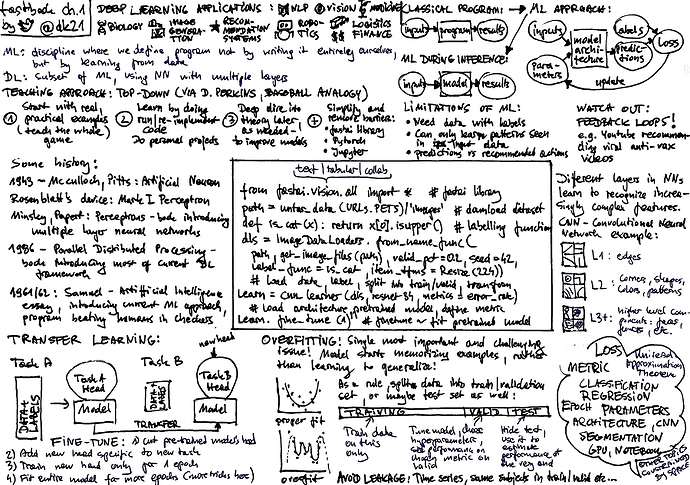 fastbook ch.1
by @dk21
DEEP LEARNING APPLICATIONS: NLP VISION
BIOLOGY IMAGE GENERATION RECOMMENDATION SYSTEMS ROBOTICS LOGISTICS FINANCE
ML: discipline where we define program not by writing it entirely ourselves,
but by learning from data
DL: Subset of ML, using NN with multiple layers
CLASSICAL PROGRAM:
inputs program results
ML DURING INFERENCE:
inputs model results
ML APPROACH:
inputs
Parameters
model architecture
labels
predictions
Loss
update
TEACHING APPROACH: TOP-DOWN (VIA D. PERKINS, BASEBALL ANALOGY)
1 Start with real, practical examples (teach the whole game)
2 Learn by doing run/re-implement code Do personal projects
3 Deep dive into theory later, as needed - to improve models
4 Simplify and remove barriers:
• fastai library
• Pytorch
• Jupyter
LIMITATIONS OF ML:
• Need data with labels
• Can only learn patterns seen in input data
• predictions vs recommended actions
WATCH OUT:
FEEDBACK LOOPS!
e.g. Youtube recommending viral anti-vax
videos
Some history:
1943 - McCulloch, Pitts: Artificial Neuron
Rosenblatt's device: Mark I Perceptron
Minsky, Papert: Perceptrons - book introducing
multiple layer neural networks
1986 - Parallel Distributed Processing -
book introducing most of current DL
framework
1961/62: Samuel - Artificial Intelligence
essay, introducing current ML approach,
program beating humans in checkers
text | tabular | collab
from fastai.vision.all import * # fastai library
path = untar_data(URLs.PETS)/'images' # download dataset
def is_cat(x): return x[0].isupper() # labelling function
dls = ImageDataLoaders.from_name_func(
path, get_image_files(path), valid_pct=0.2, seed=42,
label_func=is_cat, item_tfms=Resize(224))
# load data, label, split into train/valid, transform
learn = cnn_learner(dls, resnet34, metrics=error_rate)
# Load architecture, pretrained model, define metric
learn.fine_tune(1) # finetune ~ fit pretrained model
Different layers in NNs
learn to recognize increasingly complex features.
CNN - Convolutional Neural
Network example:
L1: edges
L2: Corners, shapes,
colors, patterns
L3+: higher level concepts: faces,
fences, etc.
TRANSFER LEARNING:
Task A
DATA + LABELS
Task A Head
Model
Task B
DATA + LABELS
new head
Task B Head
Model
TRANSFER
FINE-TUNE: 1) Cut pre-trained model's head
2) Add new head specific to new task
3) Train new head only for 1 epoch
4) Fit entire model for more epochs (more tricks here)
OVERFITTING: Single most important and challenging
issue! Model starts memorizing examples, rather
than learning to generalize:
proper fit
overfit
As a rule, split data into train/validation
set, or maybe test set as well:
TRAINING VALID TEST
Train data on this only
Tune model, choose hyperparameters, see performance on chosen metric on valid
Hide test, use it to estimate performance at the very end
AVOID LEAKAGE: Time series, same subjects in train/valid etc...
LOSS
Universal Approximation Theorem
METRIC
CLASSIFICATION
REGRESSION
EPOCH PARAMETERS
ARCHITECTURE, CNN
SEGMENTATION
GPU, NOTEBOOK
OTHER TOPICS
CONSTRAINED
BY SPACE